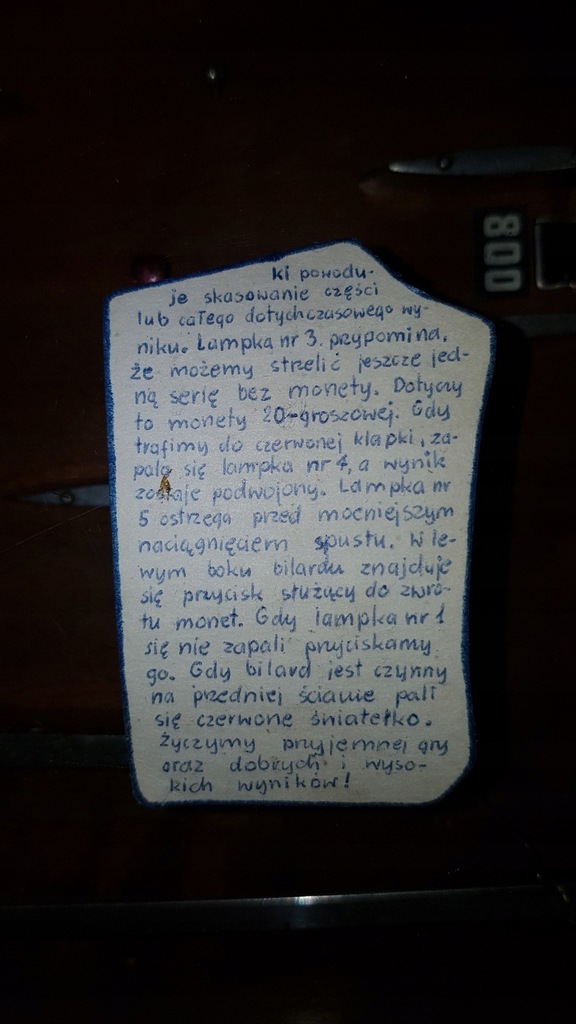 ki powodu-
je skasowanie części
lub całego dotychczasowego wy-
niku. Lampka nr 3. przypomina,
że możemy strzelić jeszcze jed-
ną serię bez monety. Dotyczy
to monety 20-groszowej. Gdy
trafimy do czerwonej klapki, za-
pala się lampka nr 4, a wynik
zostaje podwojony. Lampka nr
5 ostrzega przed mocniejszym
naciągnięciem spustu. W le-
wym boku bilardu znajduje
się przycisk służący do zwro-
tu monet. Gdy lampka nr 1
się nie zapali przyciskamy
go. Gdy bilard jest czynny
na przedniej ścianie pali
się czerwone światełko.
Życzymy przyjemnej gry
oraz dobrych i wyso-
kich wyników!
800